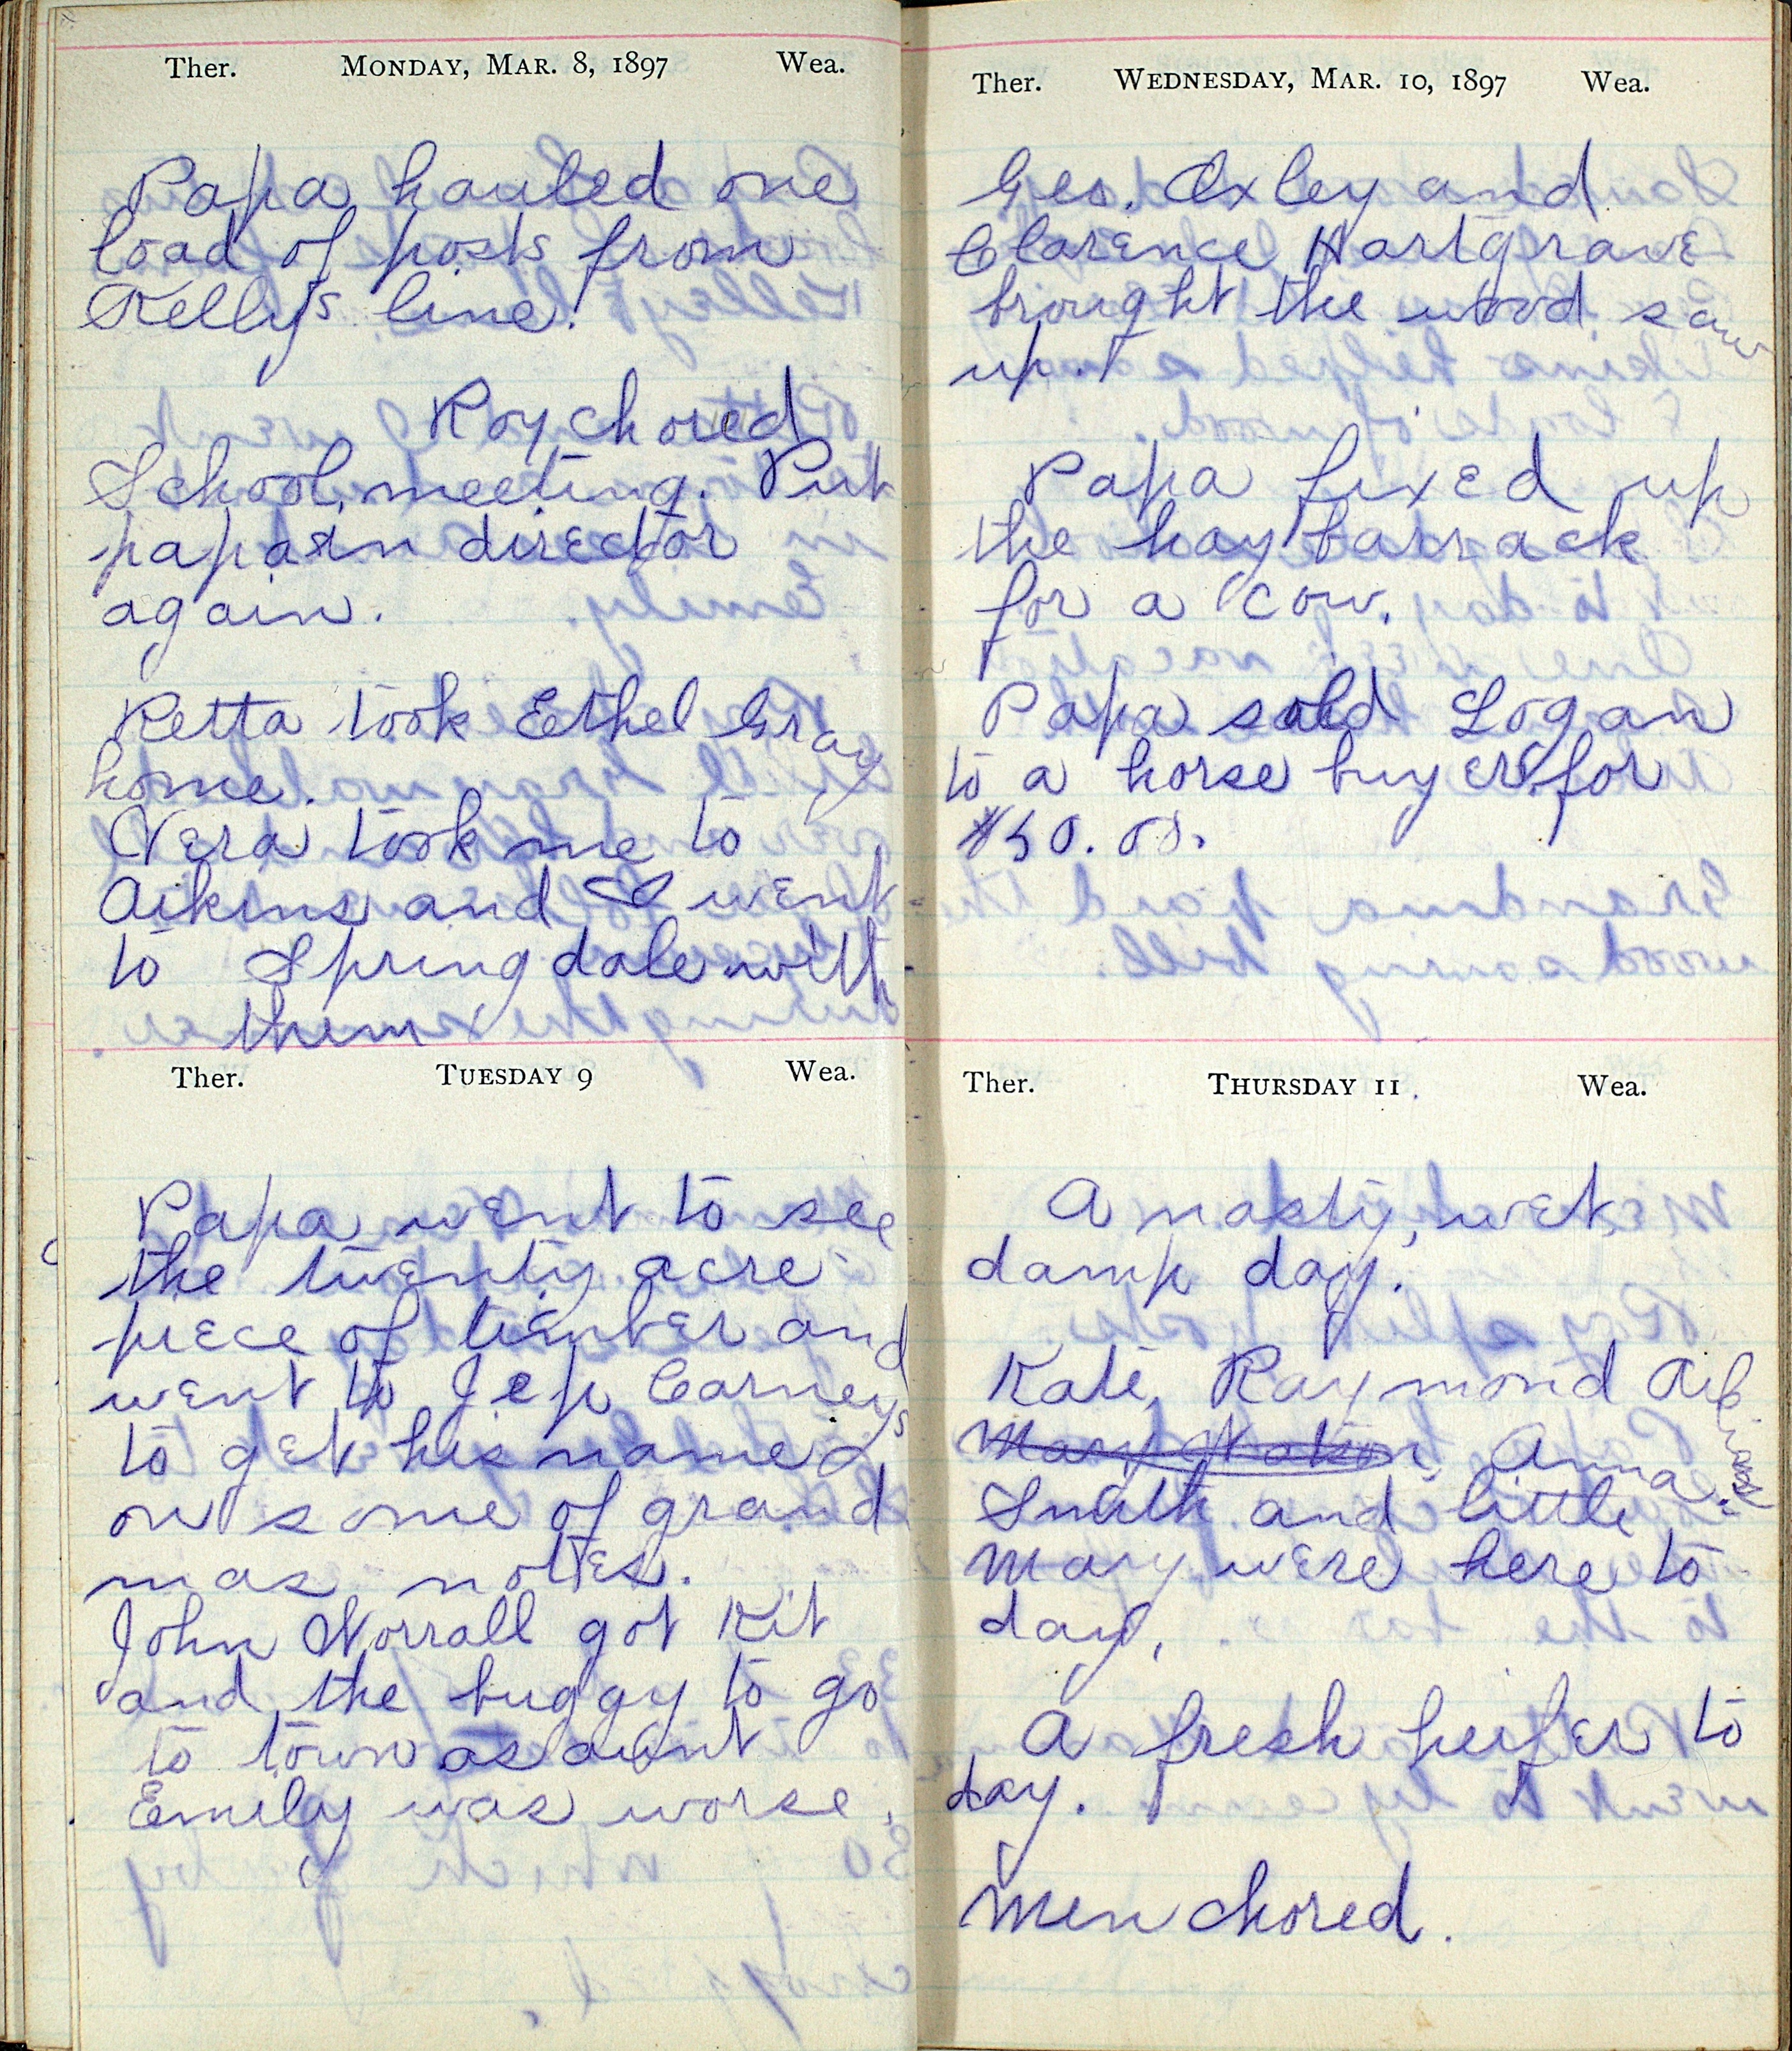 Ther. MONDAY, MAR. 8, 1897 Wea.
Papa hauled one
load of posts from
Kellys line.
Roy chored
School meeting. Put
papa in director
again.
Retta took Ethel Gray
home.
Vera took me to
Aikins and I went
to Springdale with
them
Ther. TUESDAY 9 Wea.
Papa went to see
the twenty acre
piece of timber and
went to Jep Carneys
to get his name
on some of grand
mas notes.
John Worrall got Kit
and the buggy to go
to town as aunt
Emily was worse.
Ther. WEDNESDAY, MAR. 10, 1897 Wea.
Geo. Oxley and
Clarence Hartgrave
brought the wood saw
up.
Papa fixed up
the hay barrack
for a cow.
Papa sold Logan
to a horse buyer for
$50.00.
Ther. THURSDAY 11 Wea.
A nasty, wet,
damp day.
Kate, Raymond Aikins
Mary, Anna
Smith and little
Mary were here to
day.
A fresh heifer to
day.
Men chored.